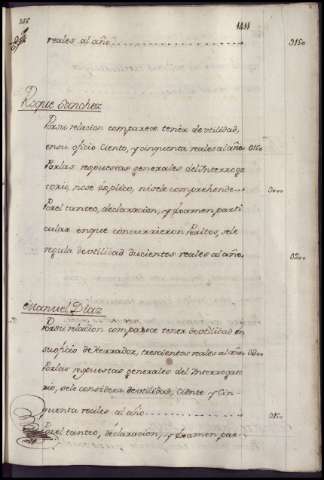 reales al año 0150
Roque Sanchez
Por su relacion comparece tener de vtilidad,
en su oficio Ciento, y cinquenta reales al año 0150
Por las respuestas generales del Interroga
torio, no se
Por el tanteo, declaracion, y examen parti
cular en que concurrieron Peritos, se le
regula de vtilidad ducientos reales al año 0200
Manuel Diaz
Por su relacion comparece tener de vtilidad en
su oficio de Herrador, trescientos reales al año 0300
Por las respuestas generales del Interrogato
rio, se le considera de vtilidad, Ciento y Cin
quenta reales al año 0150
Por el tanteo, declaracion, y examen par